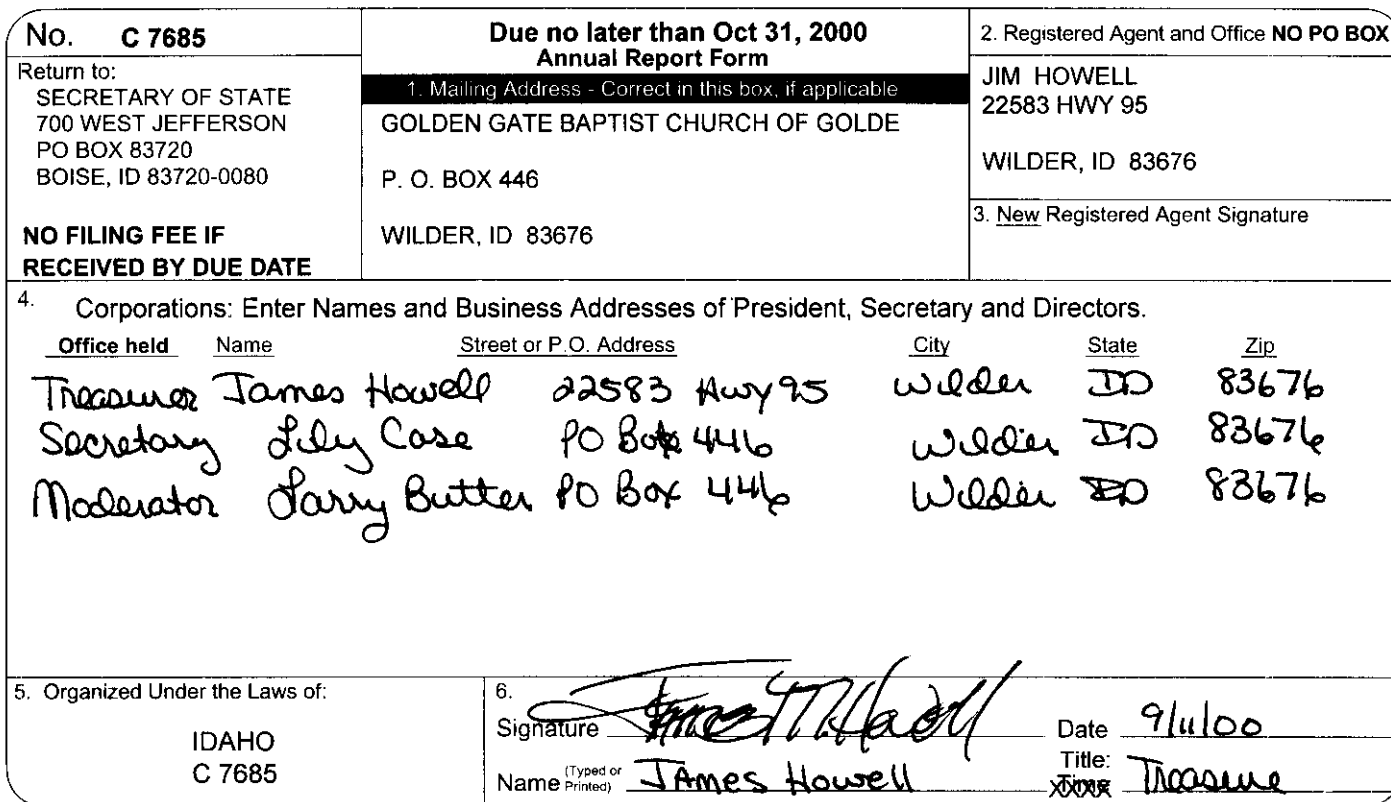 No. C 7685
Return to:
SECRETARY OF STATE
700 WEST JEFFERSON
PO BOX 83720
BOISE, ID 83720-0080
NO FILING FEE IF
RECEIVED BY DUE DATE
Due no later than Oct 31, 2000
Annual Report Form
1. Mailing Address - Correct in this box, if applicable
GOLDEN GATE BAPTIST CHURCH OF GOLDE
P. O. BOX 446
WILDER, ID 83676
2. Registered Agent and Office NO PO BOX
JIM HOWELL
22583 HWY 95
WILDER, ID 83676
3. New Registered Agent Signature
4. Corporations: Enter Names and Business Addresses of President, Secretary and Directors.
Office held Name Street or P.O. Address City State Zip
Treasurer James Howell 22583 Hwy 95 Wilder ID 83676
Secretary Lily Case PO Box 446 Wilder ID 83676
Moderator Larry Butter PO Box 446 Wilder ID 83676
5. Organized Under the Laws of:
IDAHO
C 7685
6.
Signature James M. Howell Date 9/11/00
Name (Typed or Printed) James Howell Title: Treasure